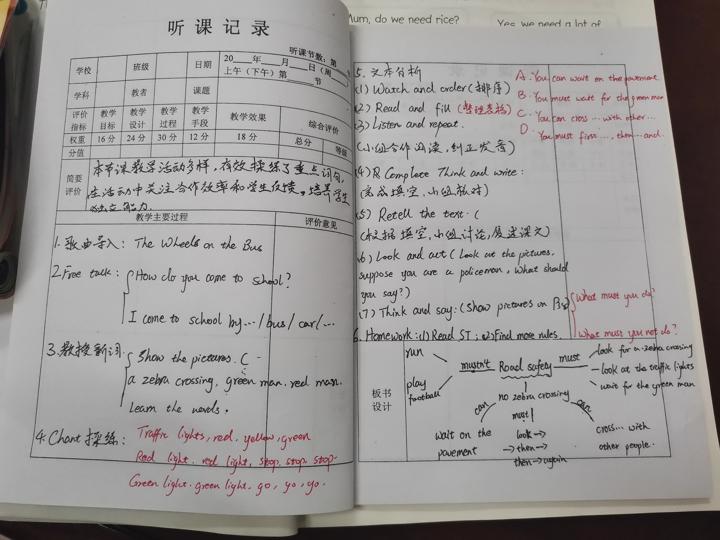 Mum, do we need rice?
Yes, we need a lot of
听课记录
听课节数：第
学校
班级
日期
20___年___月___日（周
上午（下午）第___节
学科
教者
课题
评价指标
教学目标
教学设计
教学过程
教学手段
教学效果
综合评价
权重
16分
24分
30分
12分
18分
总分
等级
分值
简要评价
本节课教学活动多样，有效操练了重点词句，
在活动中关注合作效率和学生反馈，培养学生
能力.
教学主要过程
评价意见
1. 歌曲导入： The Wheels on the Bus
2. Free talk： How do you come to school?
I come to school by.../bus/car/...
3. 教授新词： Show the pictures. (
a zebra crossing, green man, red man.
Learn the words.
4. Chant 操练： Traffic lights, red, yellow, green
Red light, red light, stop, stop, stop.
Green light, green light, go, go, go.
5. 文本分析
(1) Watch and order (排序)
(2) Read and fill (整理表格)
(3) Listen and repeat.
(小组合作阅读，纠正发音)
(4) Complete Think and write:
(完成填空，小组核对)
(5) Retell the text. (
(根据填空，小组讨论，复述课文)
(6) Look and act (Look at the pictures,
suppose you are a policeman, what should
you say?)
(7) Think and say: (Show pictures on
What must you do?
What must you not do?
A. You can wait on the pavement
B. You must wait for the green man
C. You can cross ... with other...
D. You must first..., then... and.
6. Homework: (1) Read ST; (2) Find more rules.
板书设计
run
play football
mustn't
Road safety
must
look for a zebra crossing
look at the traffic lights
wait for the green man
no zebra crossing
can
can
must
wait on the pavement
look →
→ then →
then → again
cross... with
other people.